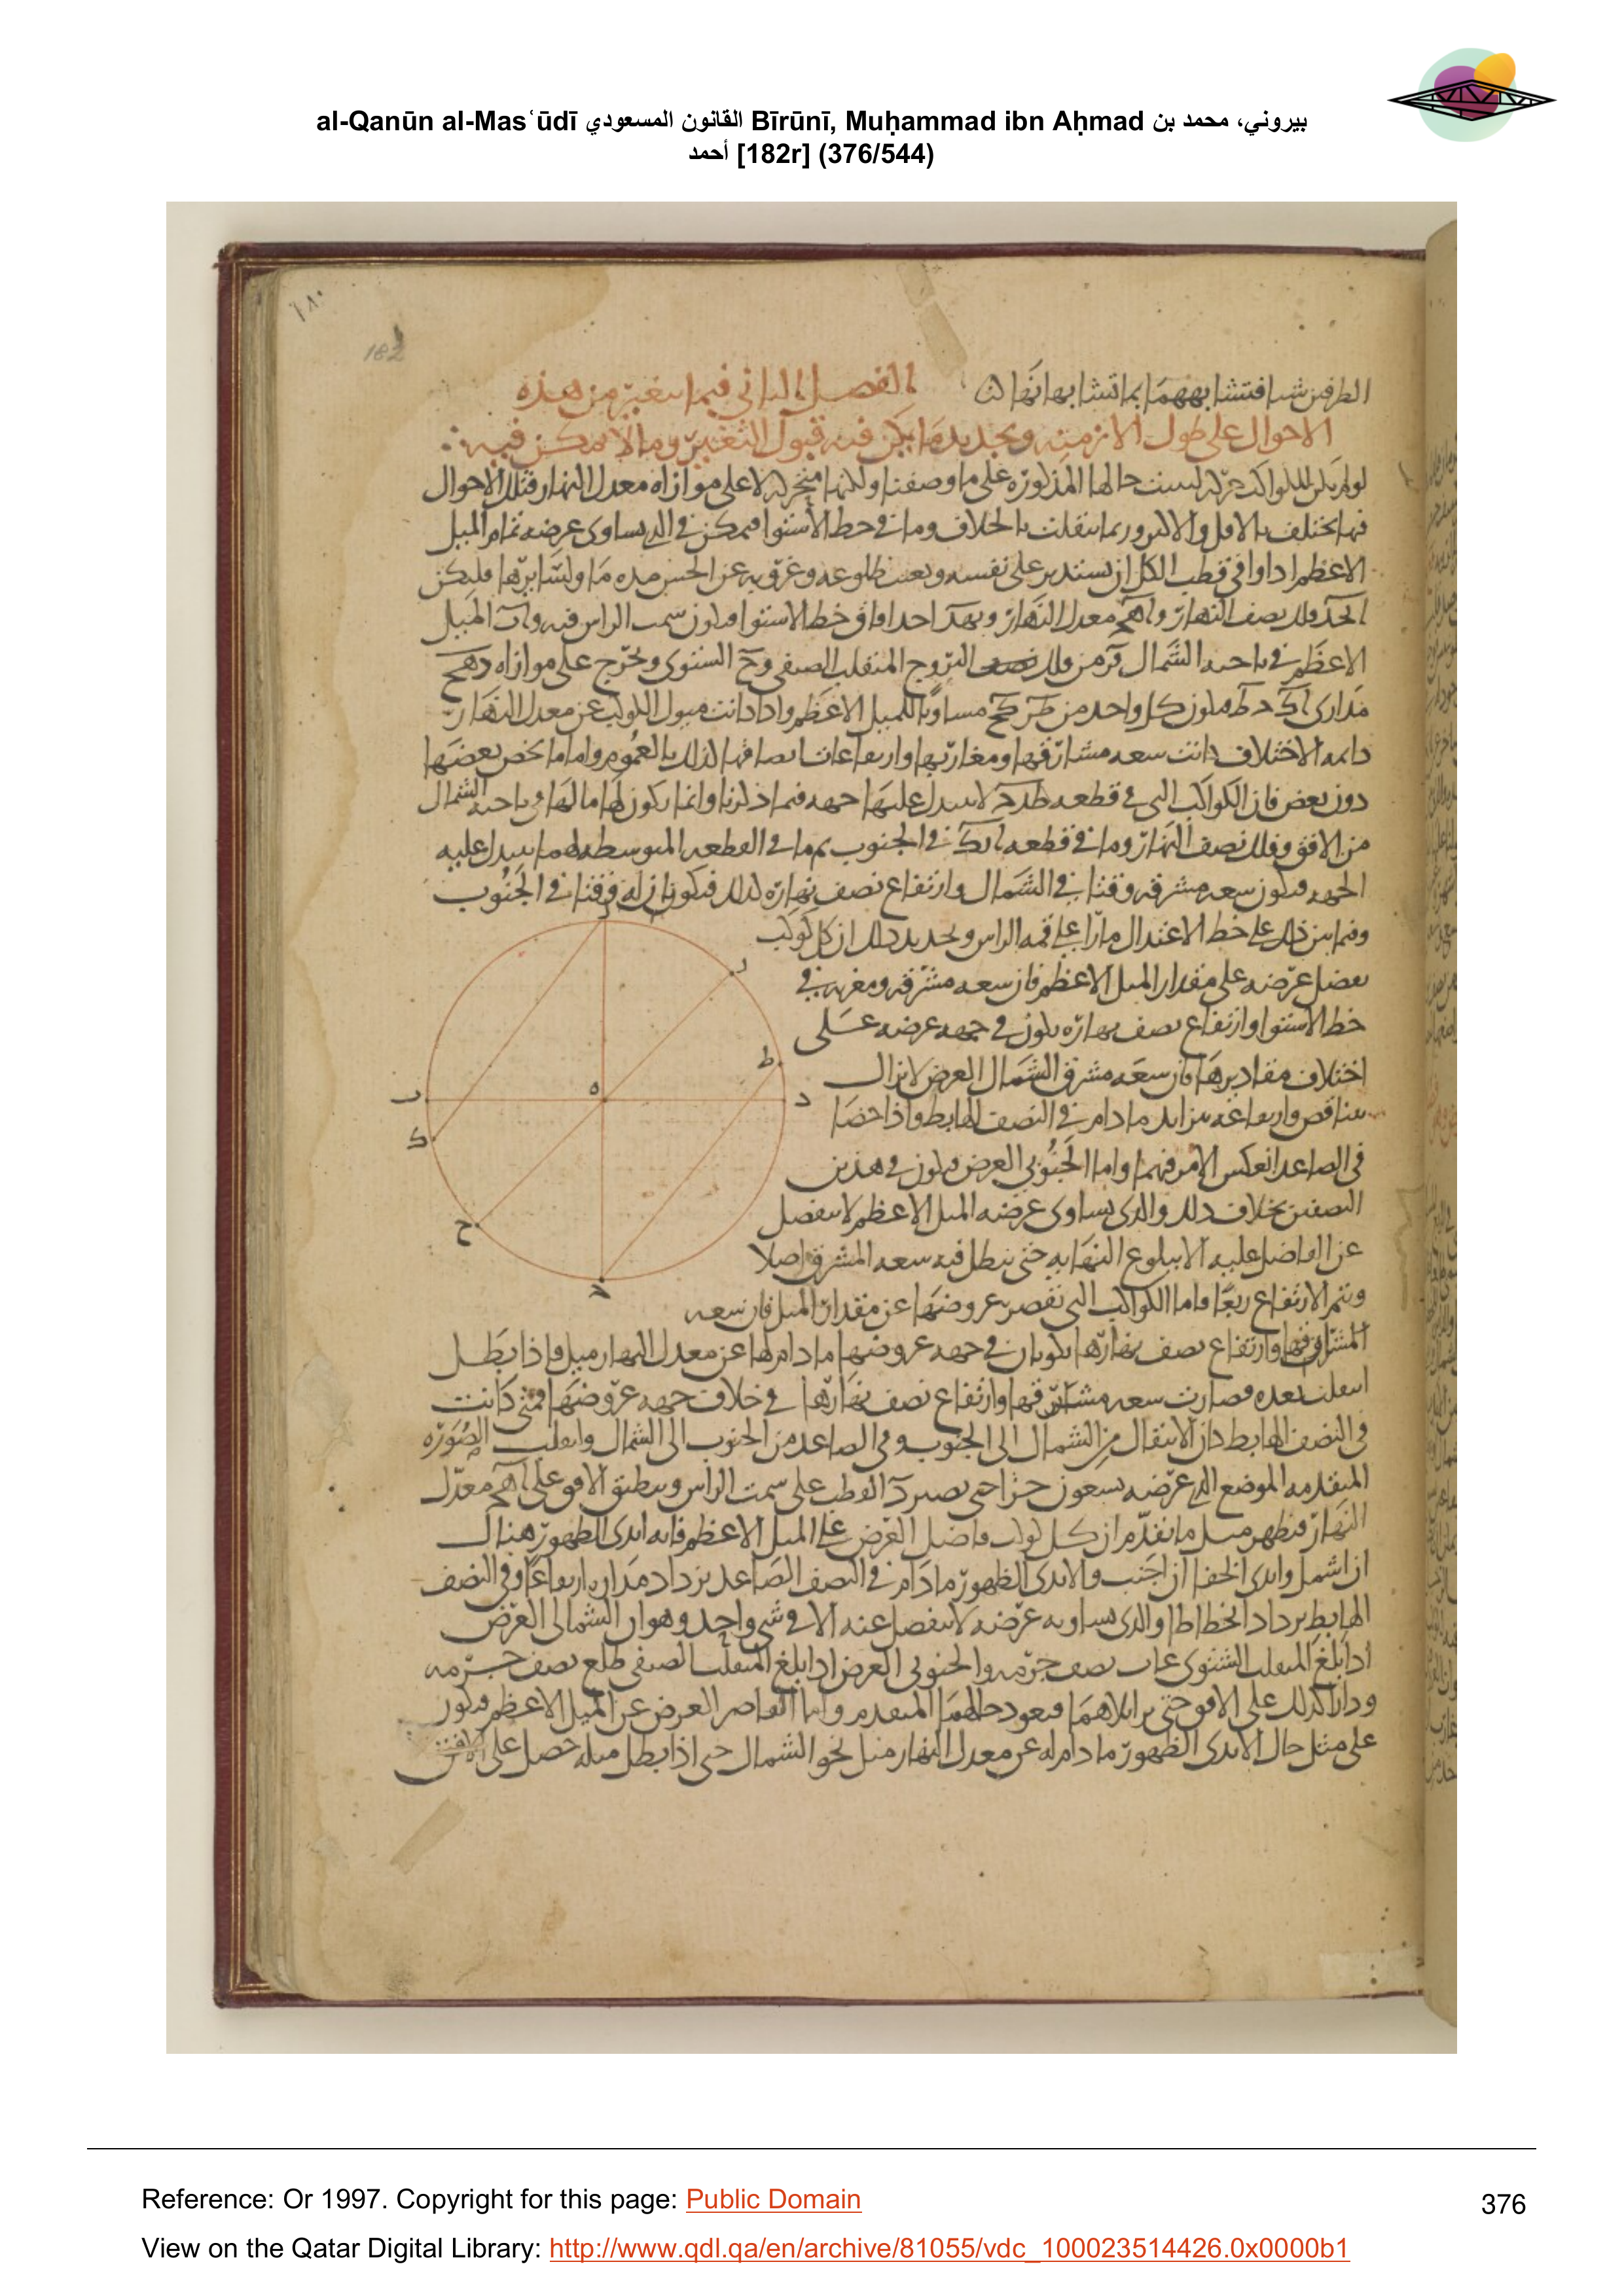 al-Qanūn al-Mas‘ūdī القانون المسعودي Bīrūnī, Muḥammad ibn Aḥmad بيروني، محمد بن
أحمد [182r] (376/544)
١٨٠
182
الطرفين شيا فتشابههما بما تشابها نهارا
الفصل الثاني فيما يتغير من هذه
الاحوال على طول الازمنة وتحديد ما يمكن فيه قبول التغير وما لا يمكن فيه
لو لم يكن للكواكب حركة ليست حالها المذكورة على ما وصفنا ولكنها متحركة لا على موازاة معدل النهار فتلك الاحوال
فيها تختلف بالاقل والاكثر وربما تنقلت بالخلاف وما في خط الاستوا فممكن في الذي يساوى عرضه تمام الميل
الاعظم اذا وافى قطب الكل ان يستدير على نفسه طلوعه وغروبه عن الحس مدة ما فليكن
فلك نصف النهار و معدل النهار خط الاستوا فيكون سمت الراس فيه الميل
الاعظم في ناحية الشمال من فلك البروج المنقلب الصيفي و الشتوى ونخرج على موازاة
مدارى فيكون كل واحد من مساويا للميل الاعظم واذا كانت ميول الكواكب عن معدل النهار
دائمة الاختلاف كانت سعة مشارقها ومغاربها وارتفاعات انصاف كذلك بالعموم واما ما يخص بعضها
دون بعض فان الكواكب التي في قطعة لا يتبدل عليها جهة فيما ذكرنا وانما يكون لها ما لها في ناحية الشمال
من الافق وفلك نصف النهار وما في قطعة في الجنوب ما في القطعة المتوسطة يتبدل عليه
الجهة فيكون سعة مشرقه وقتا في الشمال وارتفاع نصف نهاره كذلك فيكونان له وقتا في الجنوب
وفيما بين ذلك على خط الاعتدال مارا على قمة الراس وتحديد ذلك ان كل كوكب
يفضل عرضه على مقدار الميل الاعظم فان سعة مشرقه ومغربه في
خط الاستوا وارتفاع نصف نهاره يكون في جهة عرضه على
اختلاف مقاديرها فان سعة مشرق الشمال العرض لا تزال
تتناقص وارتفاعه يتزايد ما دام في النصف الهابط واذا
في الصاعد انعكس الامر فيهما واما الجنوبي العرض فيكون في هذين
النصفين بخلاف ذلك والذي يساوى عرضه الميل الاعظم لا ينفصل
عن الفاضل عليه الا ببلوغ النهاية حتى يبطل فيه سعة المشرق اصلا
ويتم الارتفاع ربعا واما الكواكب التي تقصر عروضها عن مقدار الميل فان سعة
المشارق فيها وارتفاع نصف نهارها يكونان في جهة عروضها ما دام لها عن معدل النهار ميل فاذا بطل
انتقلت بعده فصارت سعة مشارقها وارتفاع نصف نهارها في خلاف جهة عروضها فمتى كانت
في النصف الهابط كان الانتقال من الشمال الى الجنوب وفي الصاعد من الجنوب الى الشمال الصورة
المتقدمة الموضع الذي عرضه تسعون جزا حتى يصير القطب على سمت الراس وينطبق الافق على معدل
النهار فيظهر ما تقدم ان كل كوكب فاضل العرض على الميل الاعظم فانه ابدى الظهور هناك
ان اشمل وابدى الخفا ان اجنب والابدى الظهور ما دام في النصف الصاعد يزداد مداره ارتفاعا وفي النصف
الهابط يزداد انحطاطا والذي يساويه عرضه لا ينفصل عنه الا في شي واحد وهو ان الشمالي العرض
اذا بلغ المنقلب الشتوى غاب نصف جرمه والجنوبي العرض اذا بلغ المنقلب الصيفي طلع نصف جرمه
ودارا كذلك على الافق حتى يزايلاهما فيعود حالهما المتقدم واما القاصر العرض عن الميل الاعظم فيكون
على مثل حال الابدى الظهور ما دام له عن معدل النهار ميل نحو الشمال حتى اذا بطل ميله حصل على
ر
ط
ه
د
ب
ك
ح
ج
Reference: Or 1997. Copyright for this page: Public Domain
376
View on the Qatar Digital Library: http://www.qdl.qa/en/archive/81055/vdc_100023514426.0x0000b1